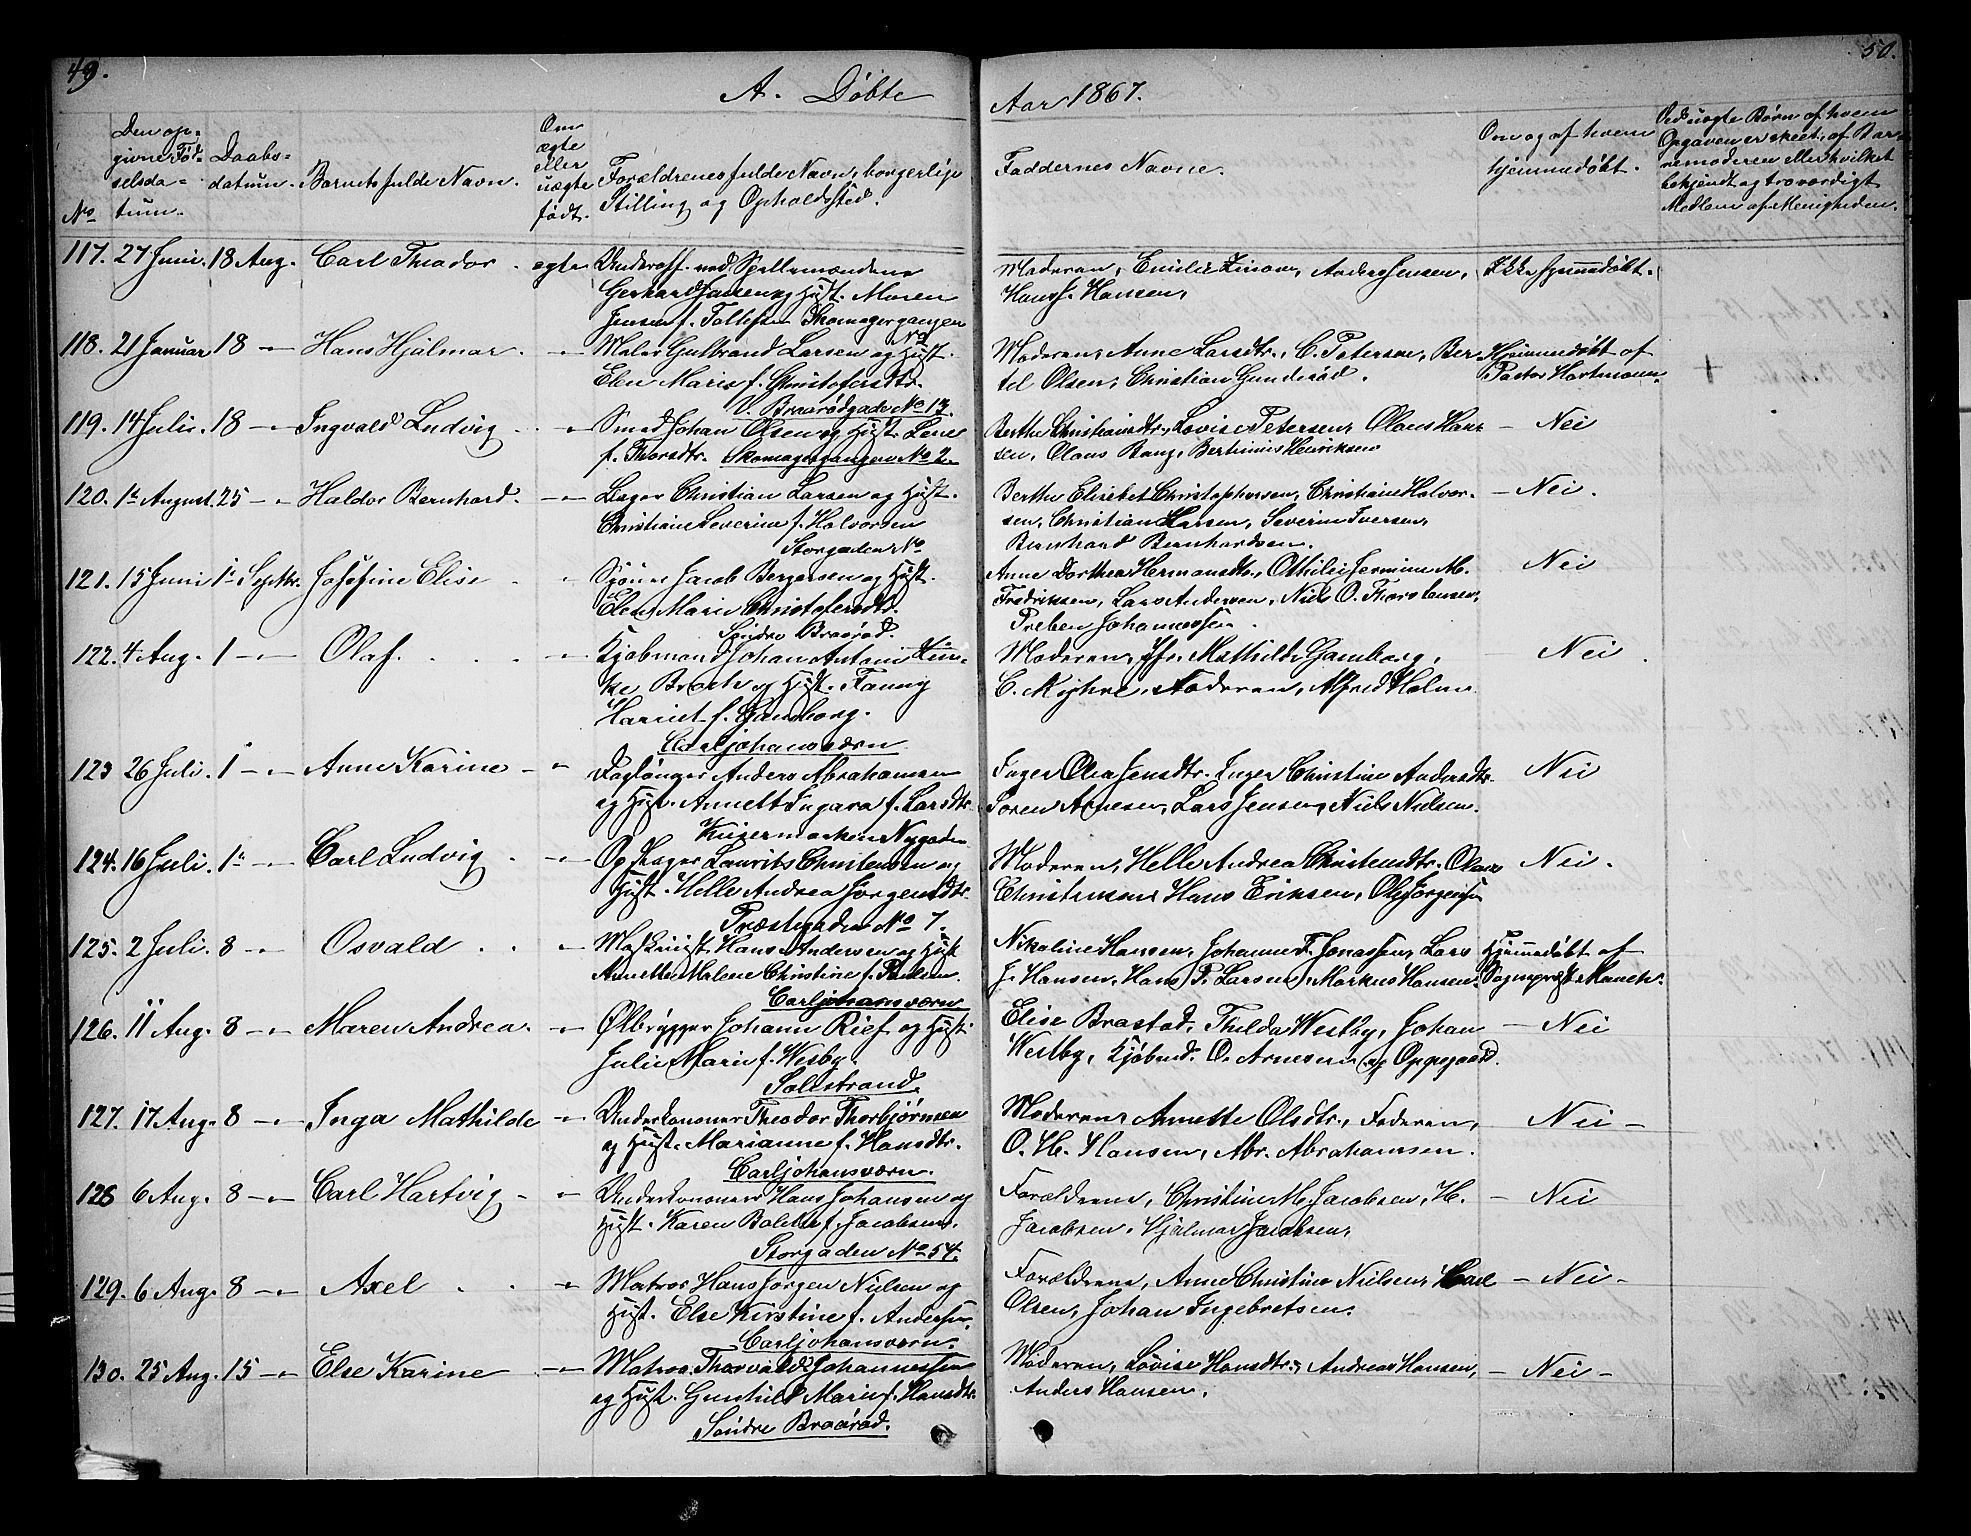 49.
A. Døbte
Aar 1867.
50.
No
Den op-
givne Fød-
selsda-
tum.
Daabs-
datum.
Barnets fulde Navn.
Om
ægte
eller
uægte
født.
Forældrenes fulde Navn, borgerlige
Stilling og Opholdssted.
Faddernes Navne.
Om og af hvem
hjemmedøbt.
Ved uægte Børn af hvem
Opgaven er skeet, af Bar-
nemoderen eller hvilket
bekjendt og troværdigt
Medlem af Menigheden.
117. 27 Juni. 18 Aug. Carl Theodor. ægte Underoff. ved Spillemændene
Gerhard Jansen og Hust. Maren
Jensen f. Tollefsen Skomagergangen
Moderen, Emilie Simon, Anders Jensen,
Hans J. Hansen,
Ikke hjemmedøbt.
118. 21 Januar 18 -"- Hans Hjalmar. -"- Maler Gulbrand Larsen og Hust.
Elen Marie f. Christofersdtr.
V. Braarødgade No 13.
Moderen, Anne Larsdtr., C. Petersen, Ber
tel Olsen, Christian Gunderød.
Hjemmedøbt af
Pastor Hartmann.
+
119. 14 Juli. 18 -"- Ingvald Ludvig -"- Smed Johan Olsen og Hust. Lene
f. Thorsdtr. Skomagergangen No 2.
Berthe Christiansdtr., Lovise Petersen, Olaus Han
sen, Olaus Bang, Berthinius Henriksen
- Nei
120. 1e August. 25 -"- Haldor Bernhard. -"- Bager Christian Larsen og Hust.
Christiane Severine f. Halvorsen
Storgaden No
Berthe Elisebet Christophersen, Christiane Halvor-
sen, Christian Larsen, Severin Iversen,
Bernhard Bernhardsen.
- Nei.
121. 15 Juni 1e Septbr. Josefine Elise -"- Sjømd Jacob Bergersen og Hust.
Elen Marie Christofersdtr.
Søndre Braarød.
Anne Dorthea Hermansdtr., Othilie Jermine M.
Fredriksen, Lars Andersen, Niels O. Thorstensen,
Preben Johannessen.
Nei
122. 4 Aug. 1 -"- Olaf. -"- Kjøbmand Johan Anton Zin-
ke Broch og Hust. Fanny
Harriet f. Gamborg.
Carljohansværn
Moderen, Jfr. Mathilde Gamborg,
C. Kyhre, Faderen, Alfred Holm
- Nei
123 26 Juli. 1 -"- Anne Karine -"- Dagløner Anders Abrahamsen
og Hust. Annette Ingara f. Larsdtr.
Keisermarken Nygaden
Inger Olea Jensdtr. Inger Christine Andersdtr.
Søren Arnesen, Lars Jensen, Niels Nielsen.
Nei
124. 16 Juli. 1e -"- Carl Ludvig -"- Opslager Laurits Christensen og
Hust. Helle Andrea Jørgensdtr.
Præstegaden No 7.
Moderen, Helle Andrea Christensdtr. Olaus
Christensen, Hans Eriksen, Ole Jørgensen
Nei.
125. 2 Juli. 8 -"- Osvald -"- Maskinist Hans Andersen og Hust
Annette Malene Christine f. Paulsen.
Carljohansværn
Nikoline Hansen, Johanne F. Jonassen, Lars
J. Hansen, Hans P. Larsen, Markus Hansen.
Hjemmedøbt af
Sognepræst Munch.
126. 11 Aug. 8 -"- Maren Andrea. -"- Ølbrygger Johann Rief og Hust.
Julie Marie f. Wesby.
Falkstrand.
Elise Brastad, Thilda Westby, Johan
Westby, Kjøbmd. O. Arnesen og Oppegaard.
- Nei
127. 17 Aug. 8 -"- Inga Mathilde -"- Underkanoner Theodor Thorbjørnsen
og Hust. Marianne f. Hansdtr.
Carljohansværn.
Moderen, Annette Olsdtr., Faderen,
O. H. Hansen, Abr. Abrahamsen.
Nei -
128 6 Aug. 8 -"- Carl Hartvig -"- Underkanoner Hans Johansen og
Hust. Karen Bolette f. Jacobsen.
Storgaden No 54.
Forældrene, Christine M. Jacobsen, H.
Jacobsen, Hjalmar Jacobsen,
- Nei
129. 6 Aug. 8 -"- Axel -"- Matros Hans Jørgen Nielsen og
Hust. Else Kirstine f. Andersen.
Carljohansværn.
Forældrene, Anne Christine Nielsen, Carl
Olsen, Johan Ingebretsen.
- Nei -
130. 25 Aug. 15 -"- Else Karine -"- Matros Thorvald Johannessen
og Hust. Gunhild Marie f. Hansdtr.
Søndre Braarød.
Moderen, Lovise Hansdtr., Andreas Hansen,
Anders Hansen,
- Nei -